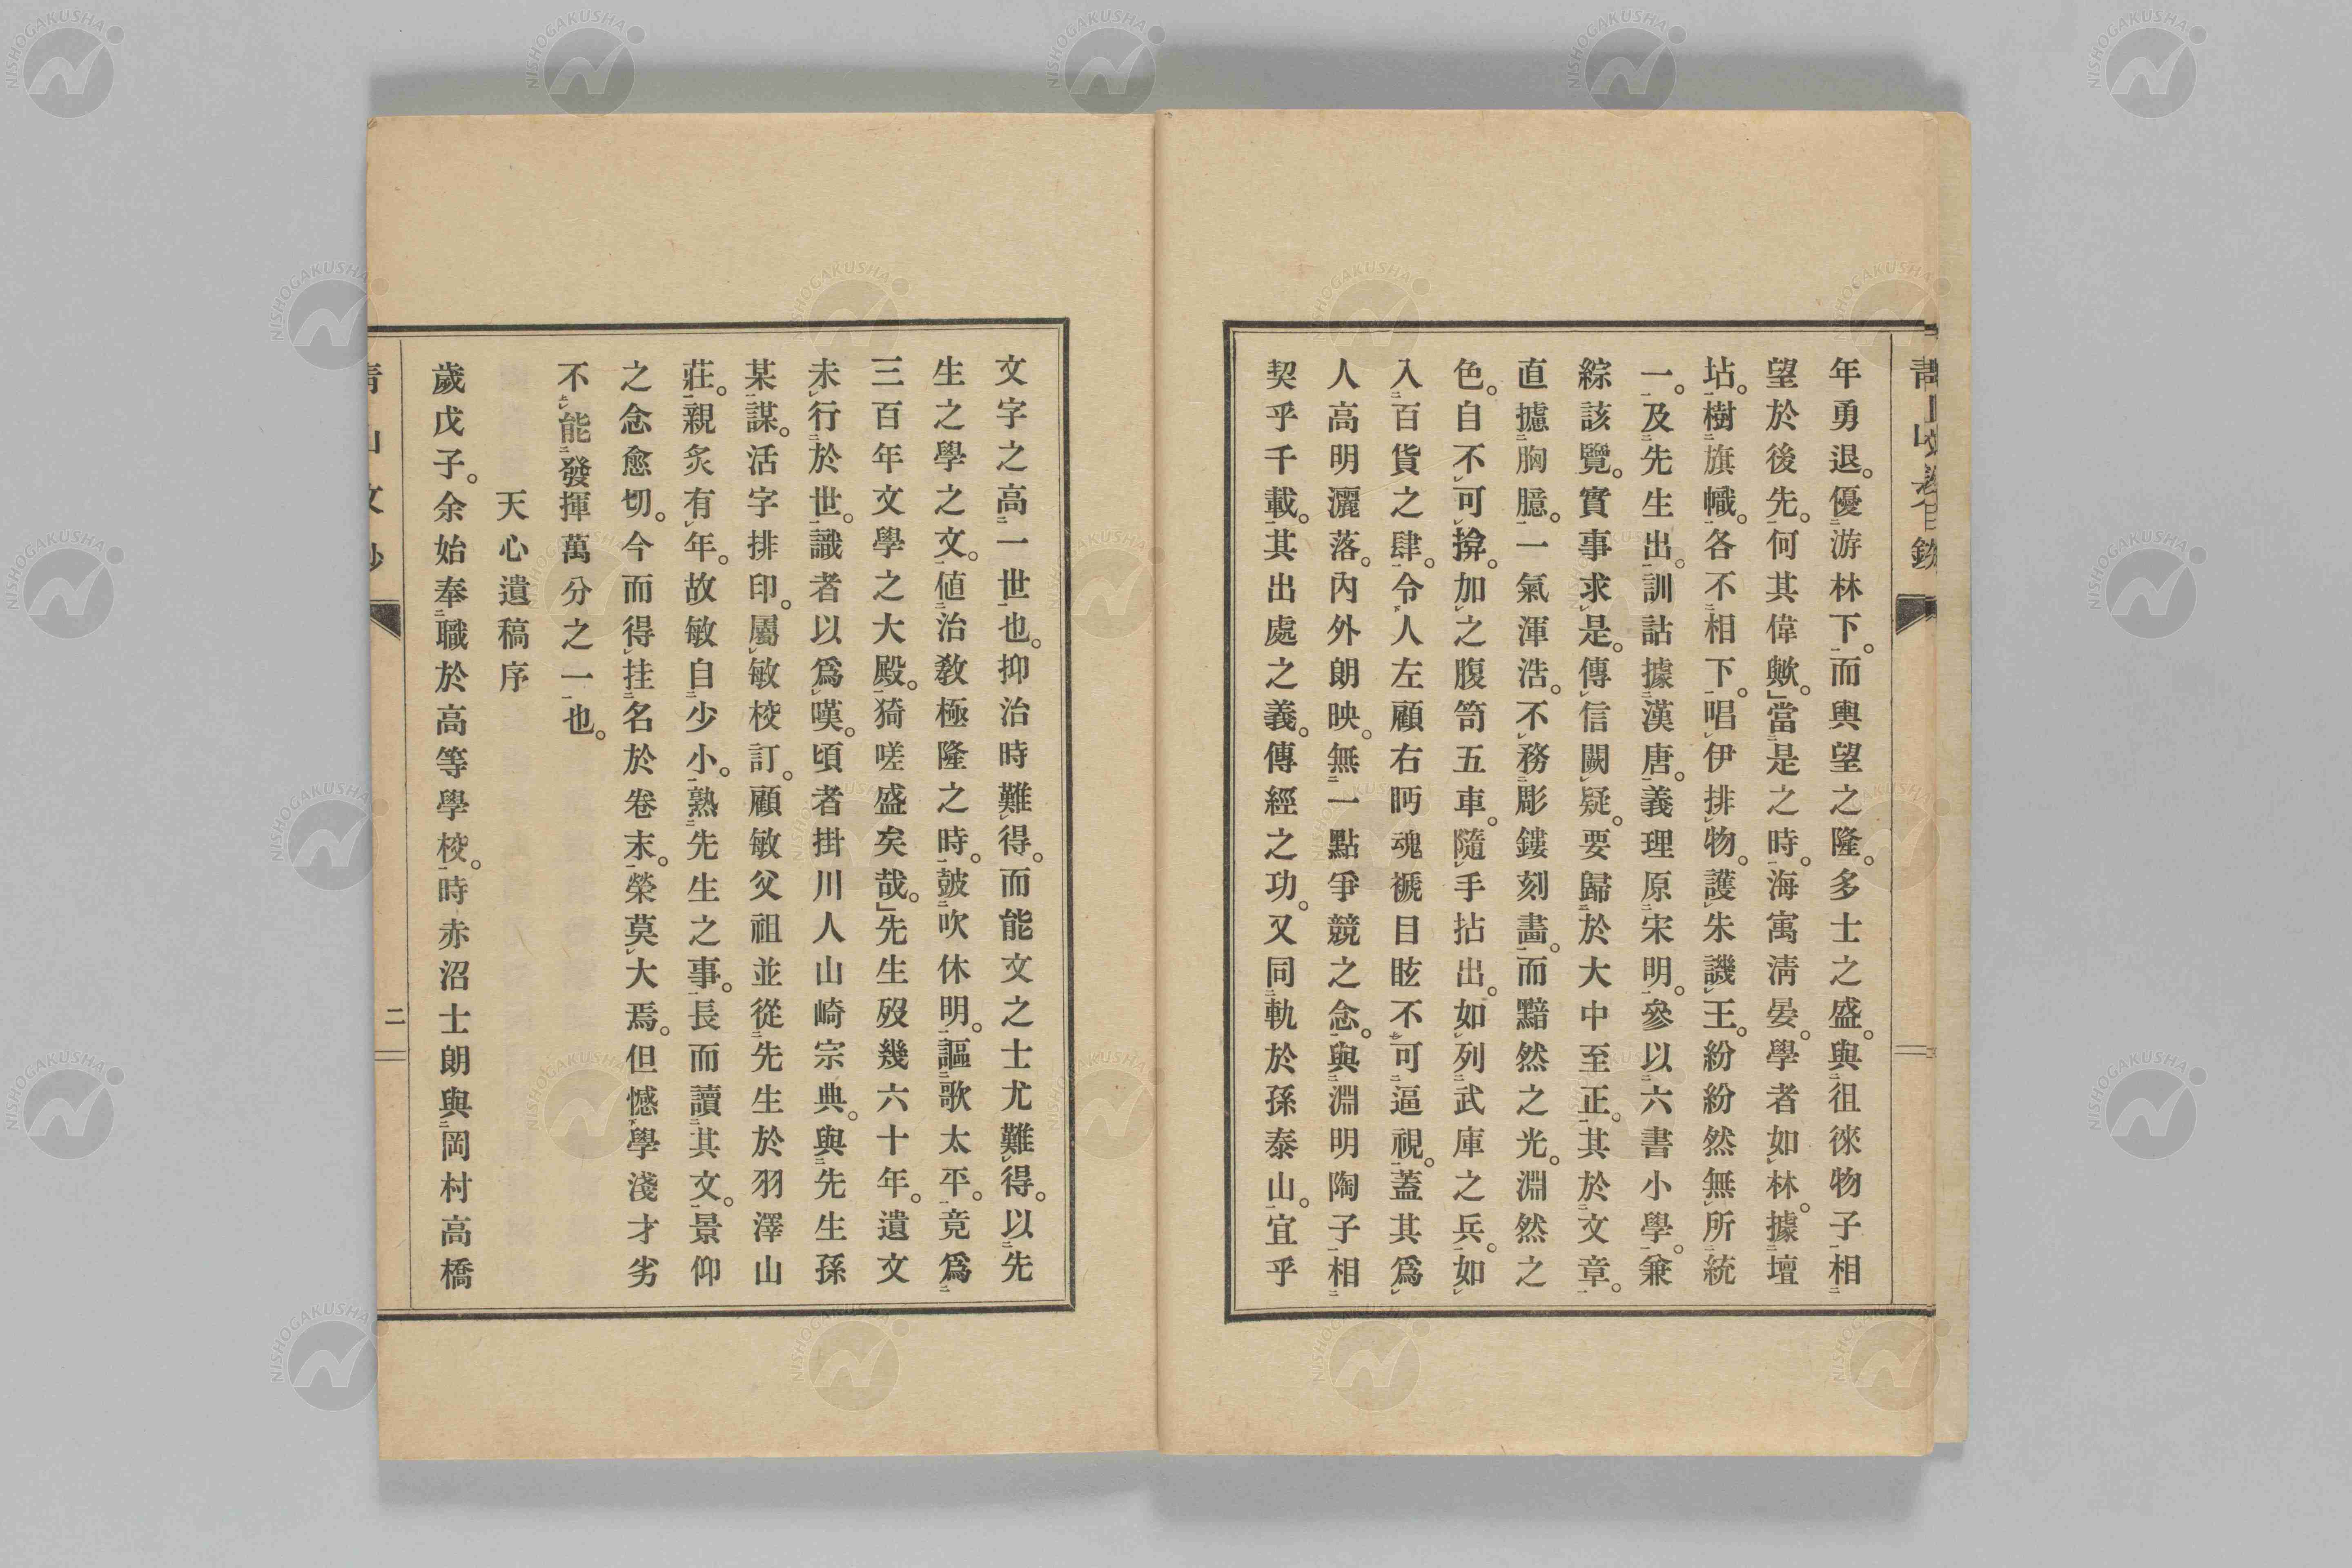 年勇退。優游林下。而輿望之隆。多士之盛。與徂徠物子相
望於後先。何其偉歟。」當是之時。海寓淸晏。學者如林。據壇
坫。樹旗幟。各不相下。唱伊排物。護朱譏王。紛紛然無所統
一。及先生出。訓詁據漢唐。義理原宋明。參以六書小學。兼
綜該覽。實事求是。傳信闕疑。要歸於大中至正。其於文章。
直攄胸臆。一氣渾浩。不務彫鏤刻畫。而黯然之光。淵然之
色。自不可揜。加之腹笥五車。隨手拈出。如列武庫之兵。如
入百貨之肆。令人左顧右眄魂褫目眩不可逼視。蓋其爲
人高明灑落。內外朗映。無一點爭競之念。與淵明陶子相
契乎千載。其出處之義。傳經之功。又同軌於孫泰山。宜乎
文字之高一世也。抑治時難得。而能文之士尤難得。以先
生之學之文。値治敎極隆之時。皷吹休明。謳歌太平。竟爲
三百年文學之大殿。猗嗟盛矣哉。」先生歿幾六十年。遺文
未行於世。識者以爲嘆。頃者掛川人山崎宗典。與先生孫
某謀。活字排印。屬敏校訂。顧敏父祖並從先生於羽澤山
莊。親炙有年。故敏自少小。熟先生之事。長而讀其文。景仰
之念愈切。今而得挂名於卷末。榮莫大焉。但憾學淺才劣
不能發揮萬分之一也。
天心遺稿序
歲戊子。余始奉職於高等學校。時赤沼士朗與岡村高橋
二
NISHOGAKUSHA